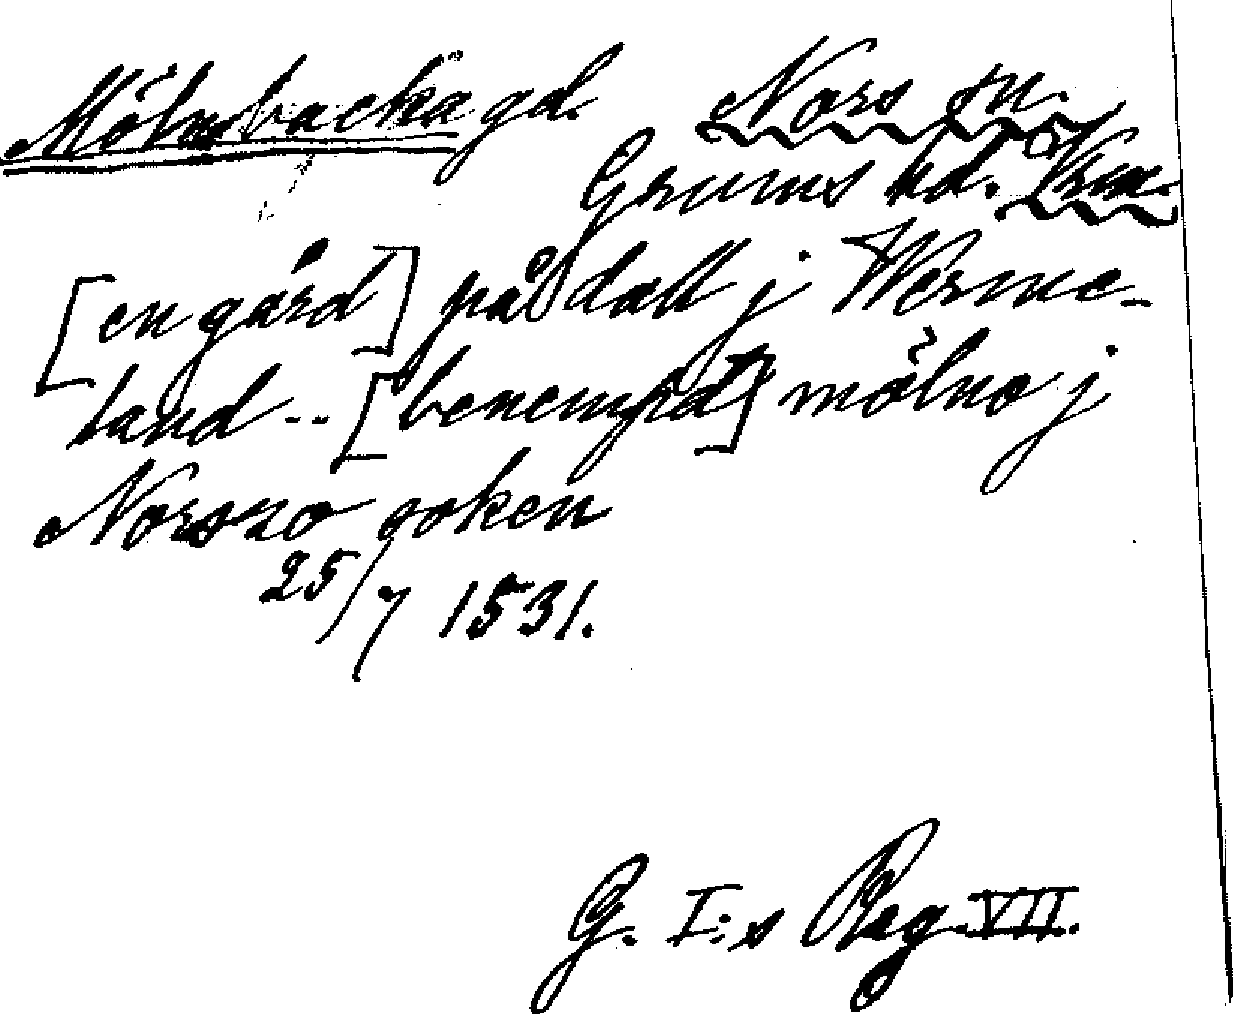 Mölnbacka gd. Nors sn.
Grums hd. Vrm.
[en gård] på dall j Werme-
land -- [benempd] mölno j
Norszo soken
25/7 1531.
G. I:s Reg. VII.